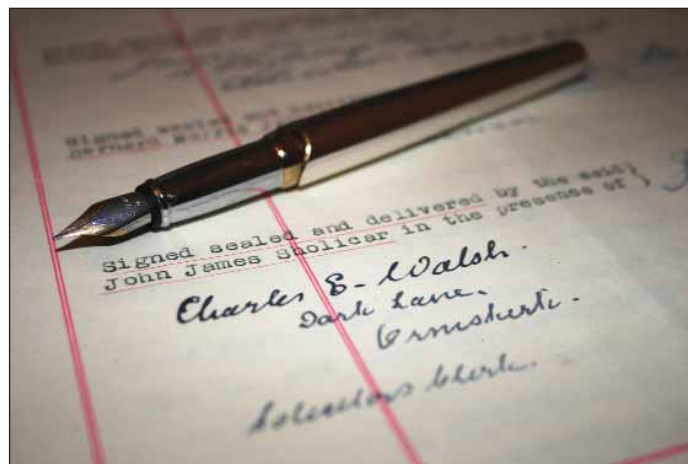 Signed sealed and
Signed sealed and delivered by the said}
John James Sholicar in the presence of
Charles E. Walsh.
Dark Lane.
Ormskirk.
Solicitors Clerk.